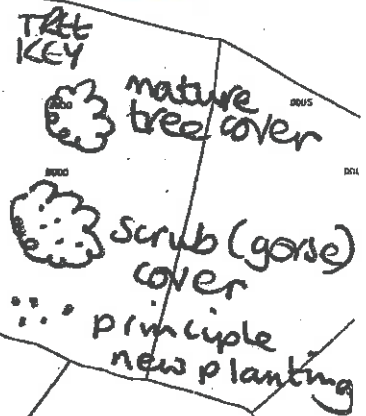 TREE
KEY
mature
tree cover
scrub (gorse)
cover
principle
new planting